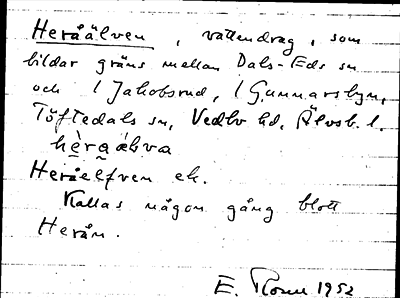 Heråälven, vattendrag, som
bildar gräns mellan Dals-Eds sn
och 1 Jakobsrud, 1 Gunnarsbyn,
Töftedals sn, Vedbo hd, Älvsb. l.
Heråelfven ek.
Kallas någon gång blott
Herån.
E. 1952